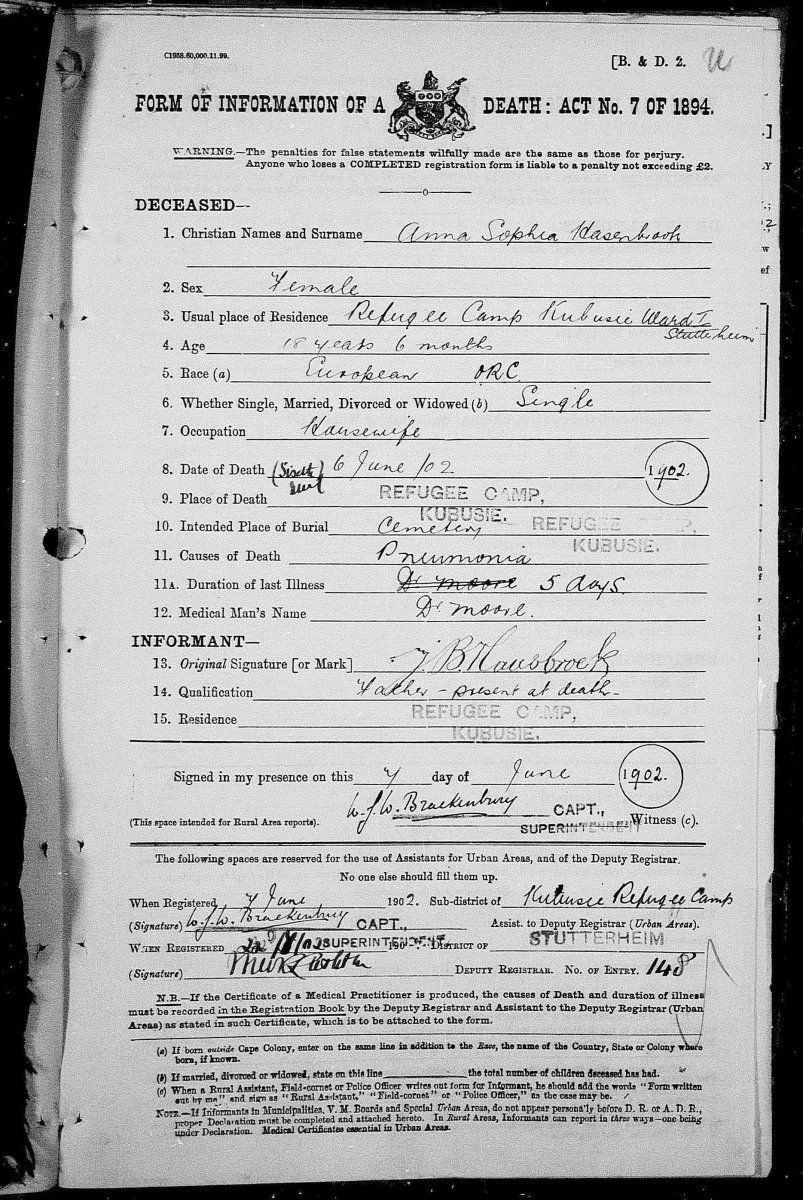 C1958.60,000.11.99.
[B. & D. 2.
FORM OF INFORMATION OF A DEATH: ACT No. 7 OF 1894.
WARNING.—The penalties for false statements wilfully made are the same as those for perjury.
Anyone who loses a COMPLETED registration form is liable to a penalty not exceeding £2.
DECEASED—
1. Christian Names and Surname Anna Sophia Hasenbroek
2. Sex Female
3. Usual place of Residence Refugee Camp Kubusie Ward I
Stutterheim
4. Age 18 years 6 months
5. Race (a) European ORC
6. Whether Single, Married, Divorced or Widowed (b) Single
7. Occupation Housewife
8. Date of Death (Sixth) 6 June /02 1902.
June
9. Place of Death REFUGEE CAMP,
KUBUSIE.
10. Intended Place of Burial Cemetery REFUGEE CAMP,
KUBUSIE.
11. Causes of Death Pneumonia
11A. Duration of last Illness Dr Moore 5 days.
12. Medical Man's Name Dr Moore.
INFORMANT—
13. Original Signature [or Mark] J. B. Hausbroek
14. Qualification Father - present at death -
15. Residence REFUGEE CAMP,
KUBUSIE.
Signed in my presence on this 7 day of June 1902.
W. J. W. Brackenbury CAPT.,
(This space intended for Rural Area reports). SUPERINTENDENT Witness (c).
The following spaces are reserved for the use of Assistants for Urban Areas, and of the Deputy Registrar.
No one else should fill them up.
When Registered 7 June 1902. Sub-district of Kubusie Refugee Camp
(Signature) W. J. W. Brackenbury CAPT., Assist. to Deputy Registrar (Urban Areas).
WHEN REGISTERED SUPERINTENDENT. 190 . DISTRICT OF STUTTERHEIM
(Signature) DEPUTY REGISTRAR. NO. OF ENTRY. 148
N.B.—If the Certificate of a Medical Practitioner is produced, the causes of Death and duration of illness
must be recorded in the Registration Book by the Deputy Registrar and Assistant to the Deputy Registrar (Urban
Areas) as stated in such Certificate, which is to be attached to the form.
(a) If born outside Cape Colony, enter on the same line in addition to the Race, the name of the Country, State or Colony where
born, if known.
(b) If married, divorced or widowed, state on this line the total number of children deceased has had.
(c) When a Rural Assistant, Field-cornet or Police Officer writes out form for Informant, he should add the words "Form written
out by me," and sign as "Rural Assistant," "Field-cornet" or "Police Officer," as the case may be.
NOTE.—If Informants in Municipalities, V. M. Boards and Special Urban Areas, do not appear personally before D. R. or A. D. R.,
proper Declaration must be completed and attached hereto. In Rural Areas, Informants can report in three ways—one being
under Declaration. Medical Certificates essential in Urban Areas.